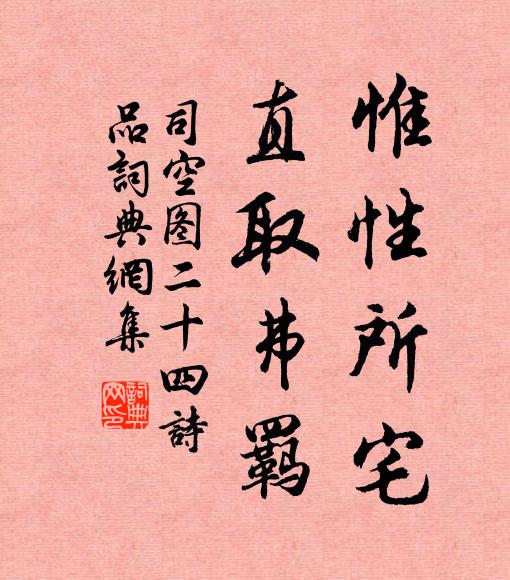 惟性所宅
真取弗羈
司空图二十四詩
品詞典網集
詞典网印